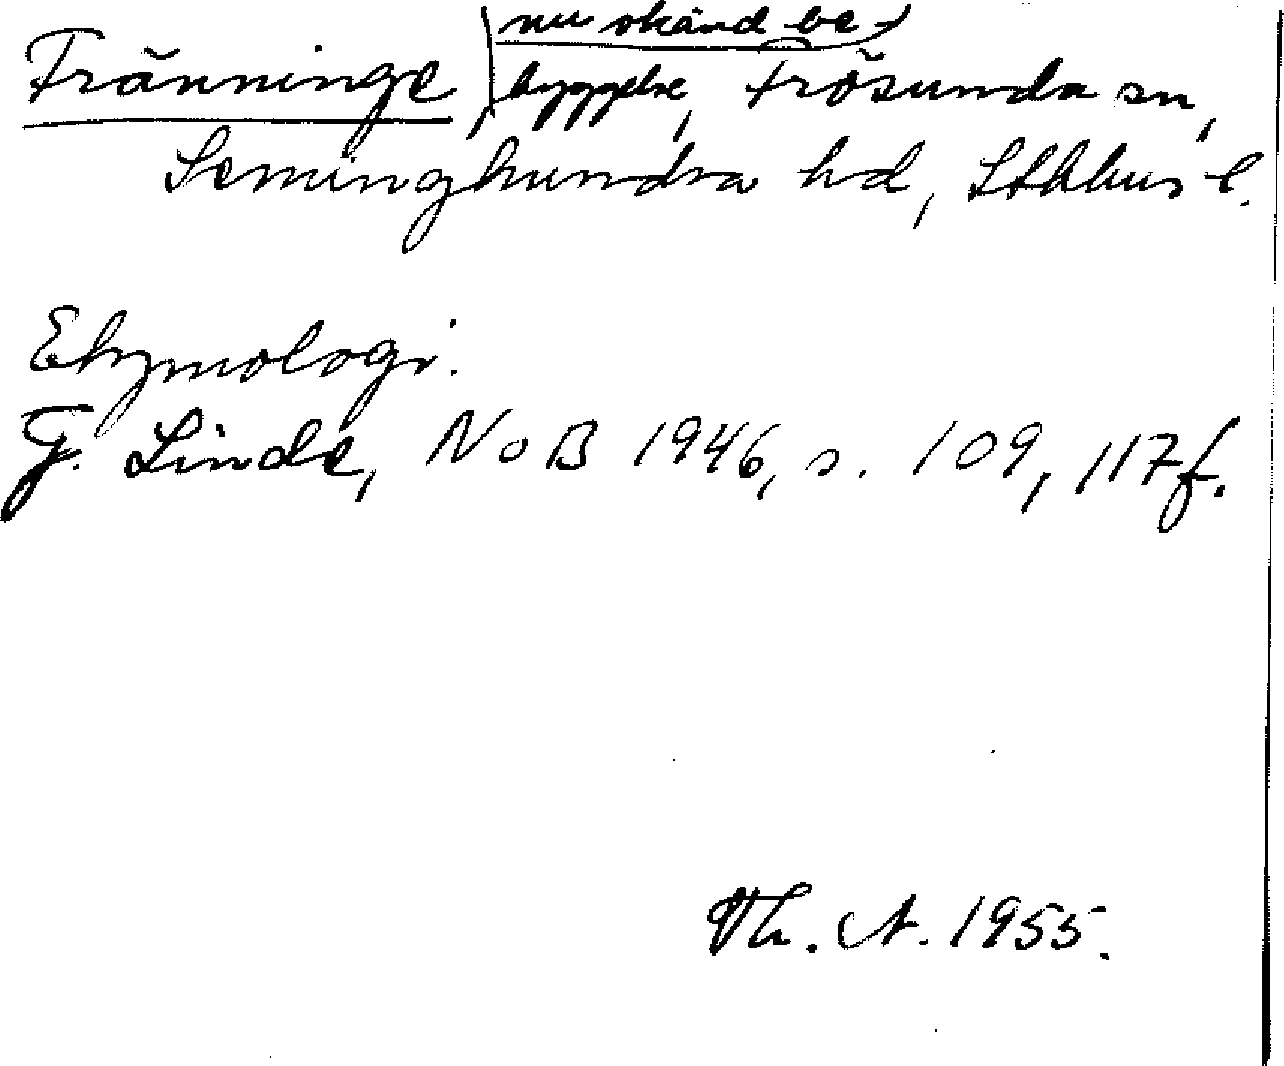 Fränninge, nu okänd be-
byggelse, Frösunda sn,
Seminghundra hd, Sthlms l.
Etymologi.
G. Linde, NoB 1946, s. 109, 117 f.
Th. A. 1955.